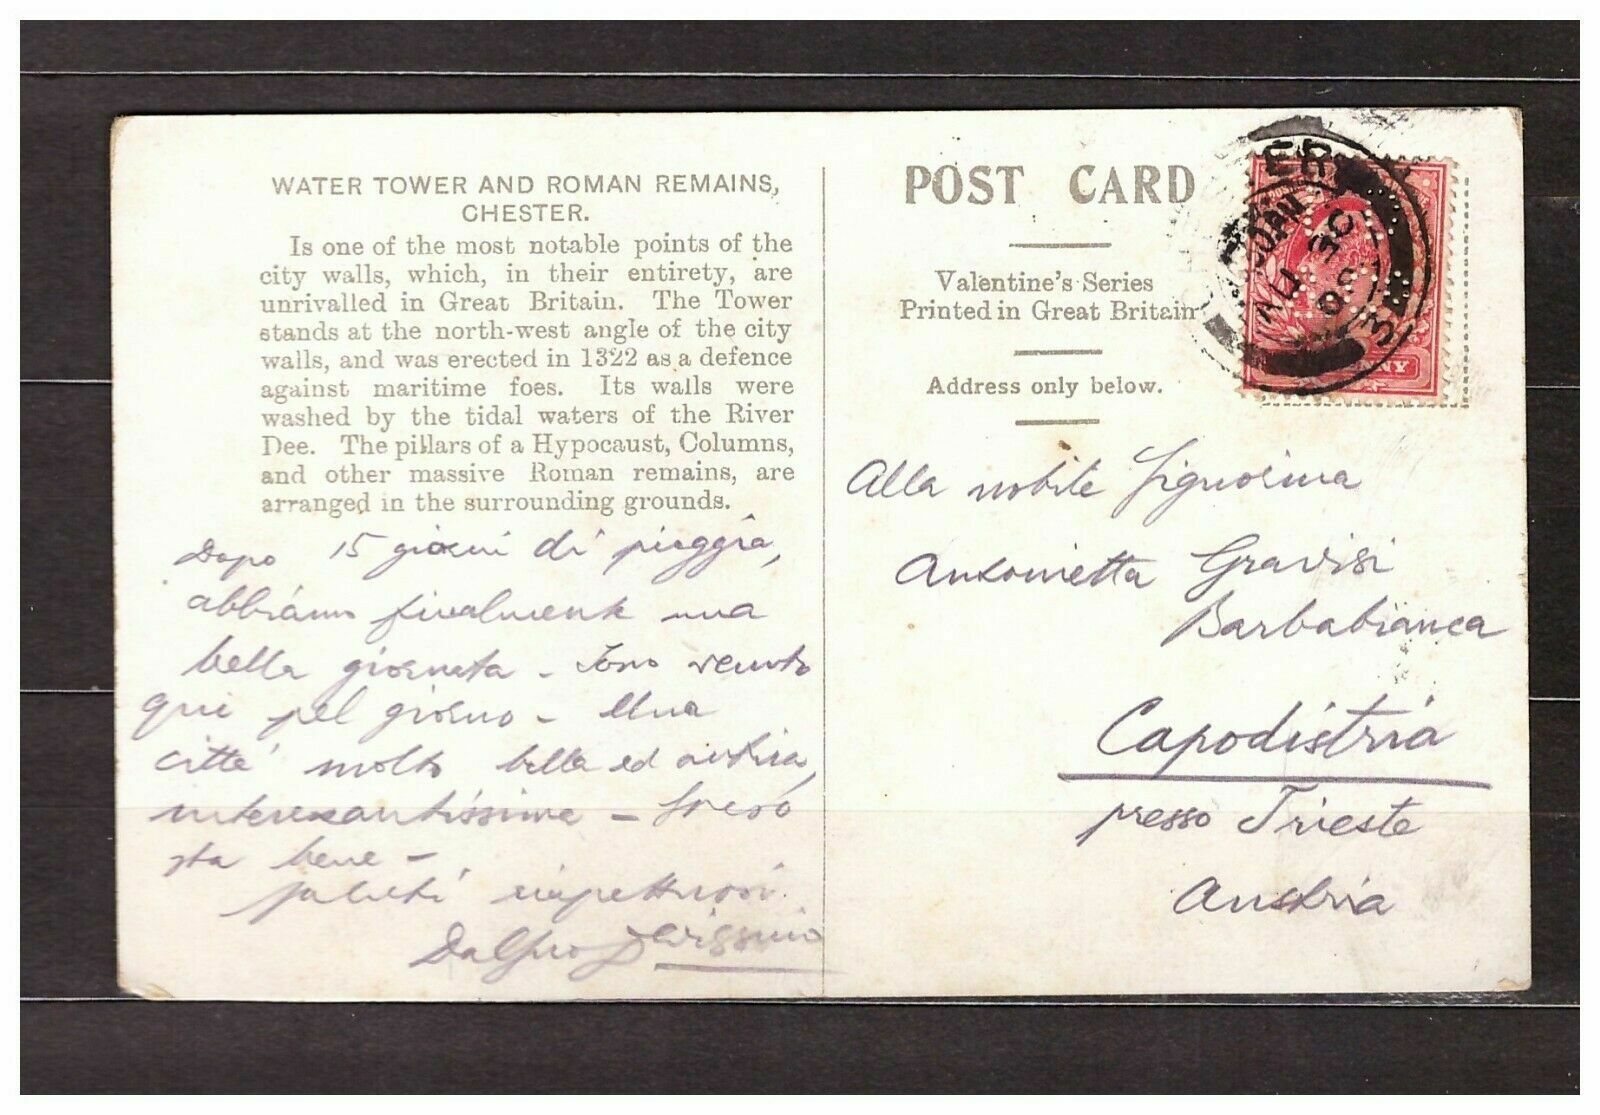 WATER TOWER AND ROMAN REMAINS,
CHESTER.
Is one of the most notable points of the
city walls, which, in their entirety, are
unrivalled in Great Britain. The Tower
stands at the north-west angle of the city
walls, and was erected in 1322 as a defence
against maritime foes. Its walls were
washed by the tidal waters of the River
Dee. The pillars of a Hypocaust, Columns,
and other massive Roman remains, are
arranged in the surrounding grounds.
Dopo 15 giorni di pioggia,
abbiamo finalmente una
bella giornata - Sono venuto
qui pel giorno - Una
città molto bella ed antica,
interessantissima - Spero
sta bene -
Saluti rispettosi
POST CARD
Valentine's Series
Printed in Great Britain
Address only below.
Alla nobile Signorina
Antonietta Gravisi
Barbabianca
Capodistria
presso Trieste
Austria